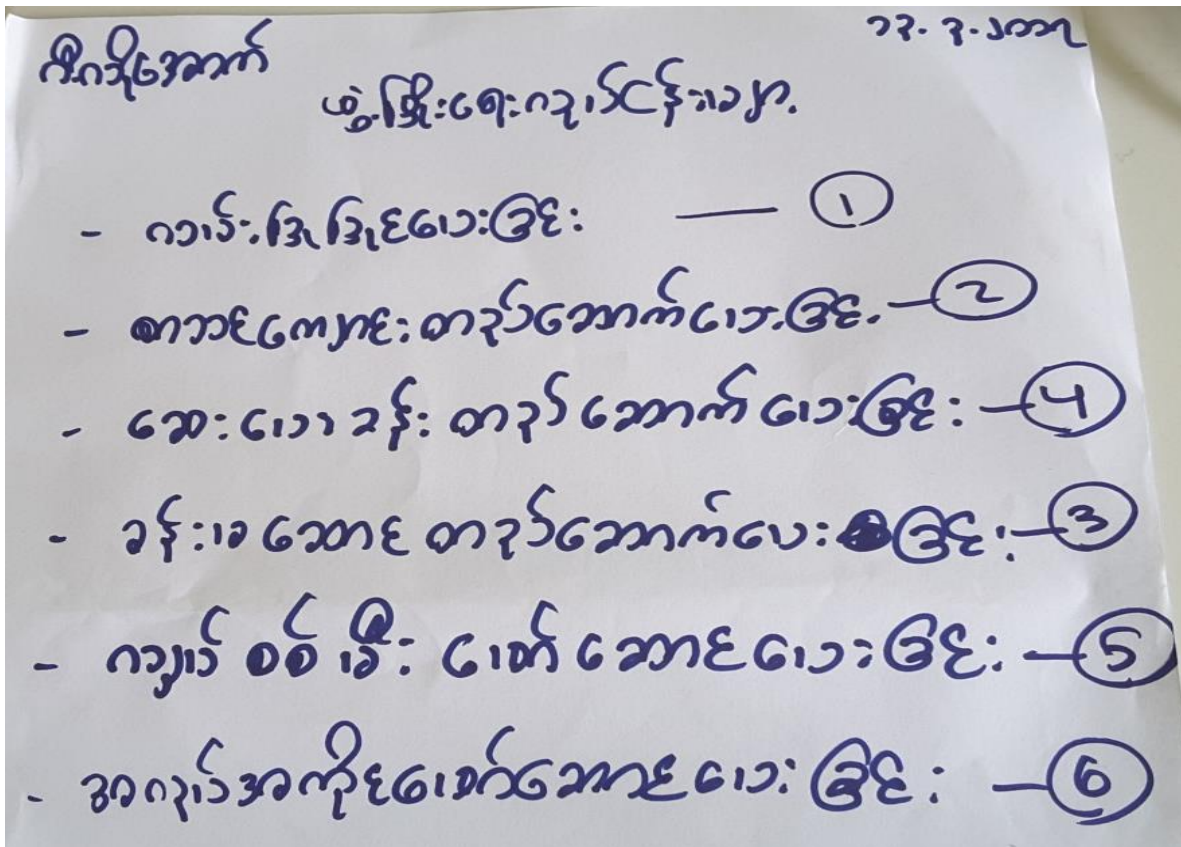 ၁၃.၃.၂၀၁၇
ဖွံ့ဖြိုးရေးလုပ်ငန်းများ
- လမ်းပြုပြင်ပေးခြင်း — 1
- စာသင်ကျောင်းတည်ဆောက်ပေးခြင်း — 2
- ဆေးပေးခန်း တည်ဆောက်ပေးခြင်း — 4
- ခန်းမဆောင် တည်ဆောက်ပေးခြင်း — 3
- လျှပ်စစ်မီး ဖော်ဆောင်ပေးခြင်း — 5
- အလုပ်အကိုင်ဖော်ဆောင်ပေးခြင်း — 6